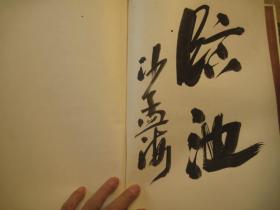 临池
沙孟海